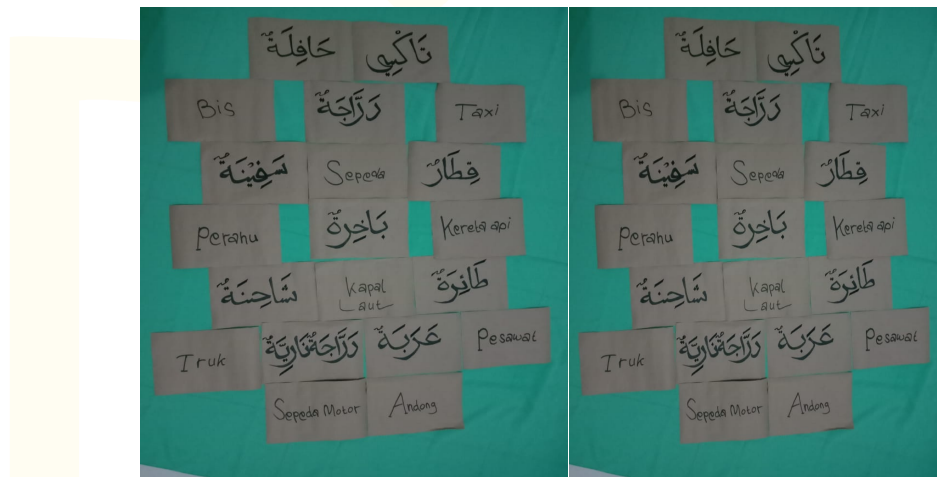 حَافِلَةٌ تَاكْسِي
Bis دَرَّاجَةٌ Taxi
سَفِيْنَةٌ Sepeda قِطَارٌ
Perahu بَاخِرَةٌ Kereta api
شَاحِنَةٌ Kapal Laut طَائِرَةٌ
Truk دَرَّاجَةٌ نَارِيَّةٌ عَرَبَةٌ Pesawat
Sepeda Motor Andong
حَافِلَةٌ تَاكْسِي
Bis دَرَّاجَةٌ Taxi
سَفِيْنَةٌ Sepeda قِطَارٌ
Perahu بَاخِرَةٌ Kereta api
شَاحِنَةٌ Kapal Laut طَائِرَةٌ
Truk دَرَّاجَةٌ نَارِيَّةٌ عَرَبَةٌ Pesawat
Sepeda Motor Andong